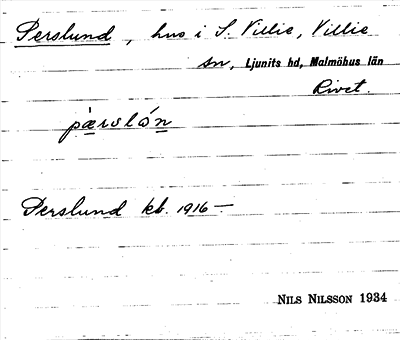 Perslund, hus i S. Villie, Villie
sn, Ljunits hd, Malmöhus län
Rivet.
pærslón
Perslund kb. 1916 —
NILS NILSSON 1934